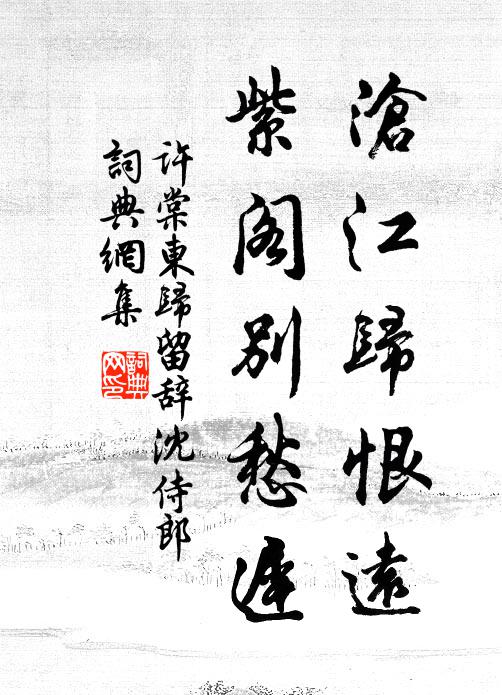 滄江歸恨遠
紫阁別愁遲
许棠東歸留辞沈侍郎
詞典網集
詞典
网印